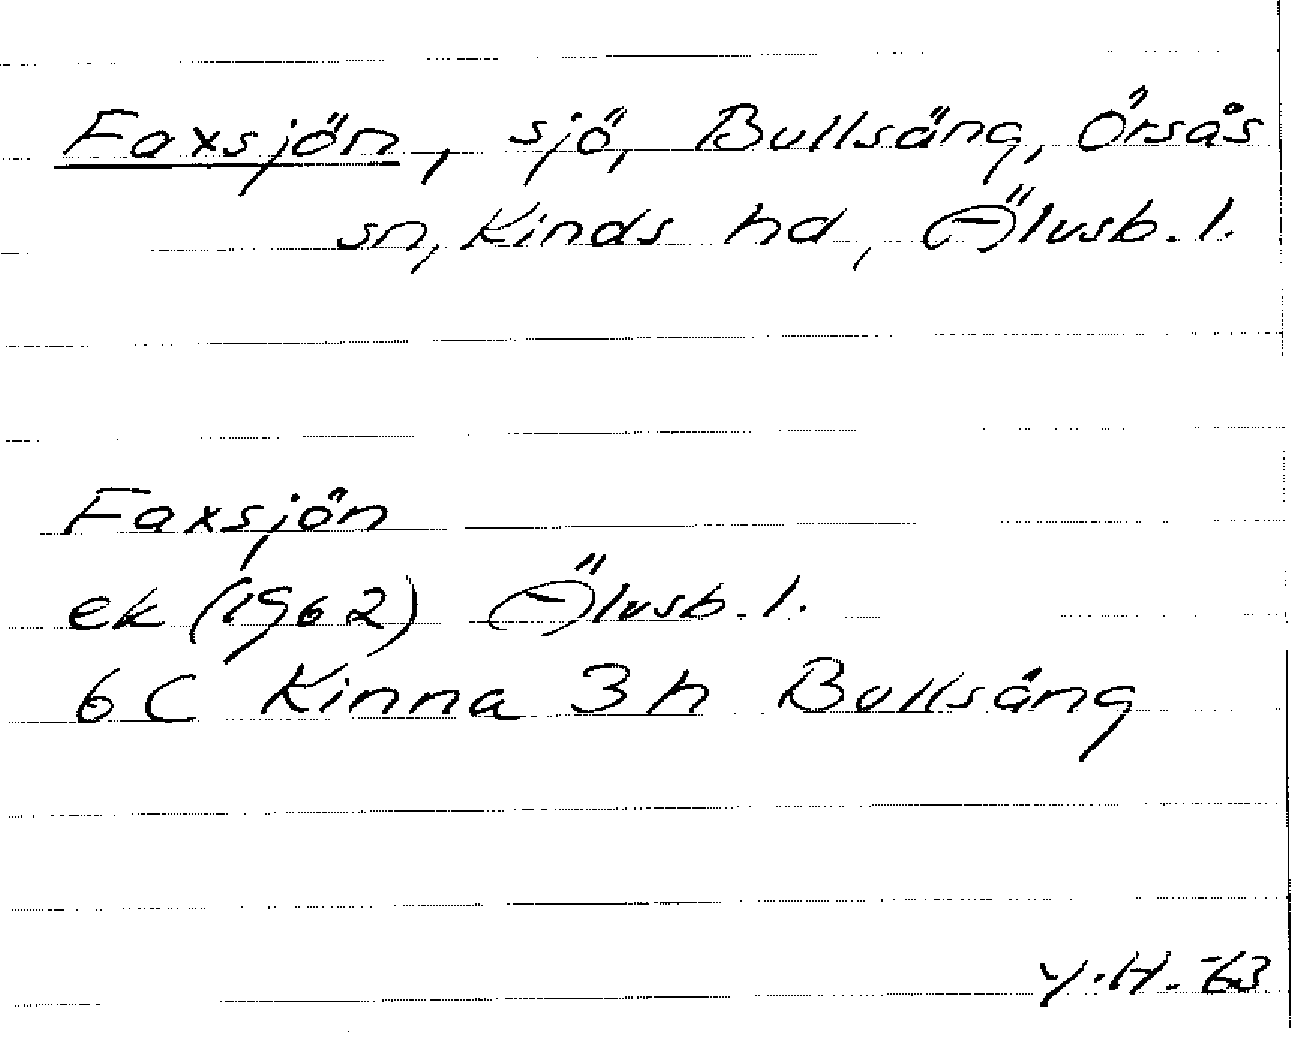 Faxsjön, sjö, Bullsäng, Örsås
sn, Kinds hd, Älvsb. l.
Faxsjön
ek (1962) Älvsb. l.
6C Kinna 3h Bullsäng
Y.H. -63